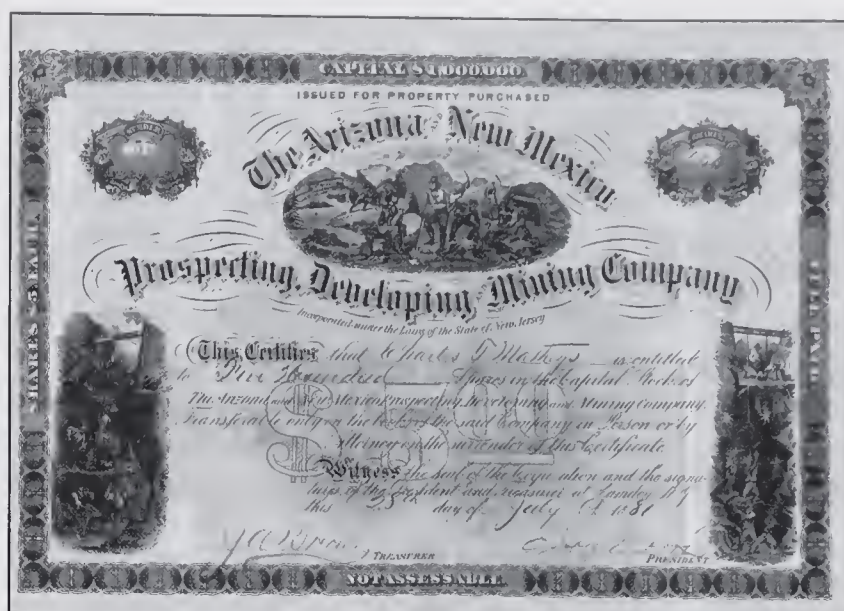 CAPITAL $1,000,000.
ISSUED FOR PROPERTY PURCHASED
NUMBER
SHARES
The Arizona and New Mexico
Prospecting, Developing and Mining Company
Incorporated under the Laws of the State of New Jersey
SHARES $5 EACH.
FULL PAID.
This Certifies that Charles T Mathys is entitled
to Five Hundred Shares in the Capital Stock of
The Arizona and New Mexico Prospecting, Developing and Mining Company.
Transferable only on the books of the said Company in Person or by
Attorney on the surrender of this Certificate
$5.00
Witness the Seal of the Corporation and the signa-
tures of the President and Treasurer at Camden N.J.
this 25th day of July 1881
TREASURER
PRESIDENT
NOT ASSESSABLE.